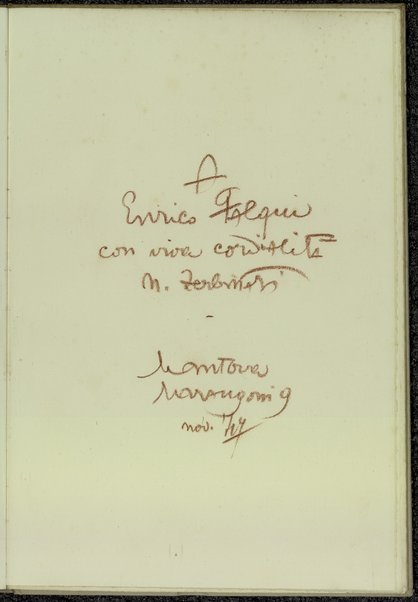 A
Enrico Falqui
con viva cordialità
N. Zerbinati
-
Mantova
Marangoni 9
nov. '47